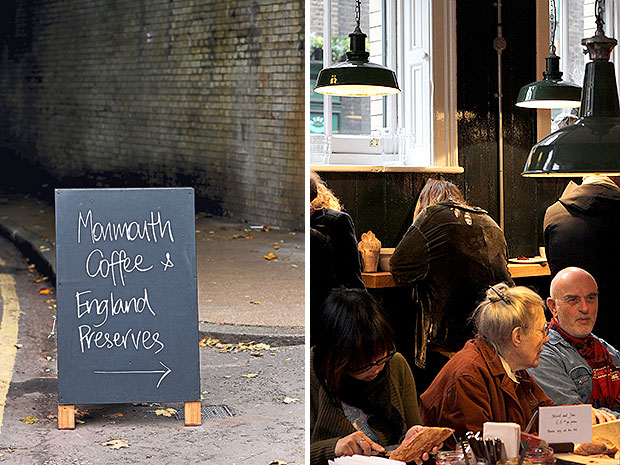 Monmouth
Coffee &
England
Preserves